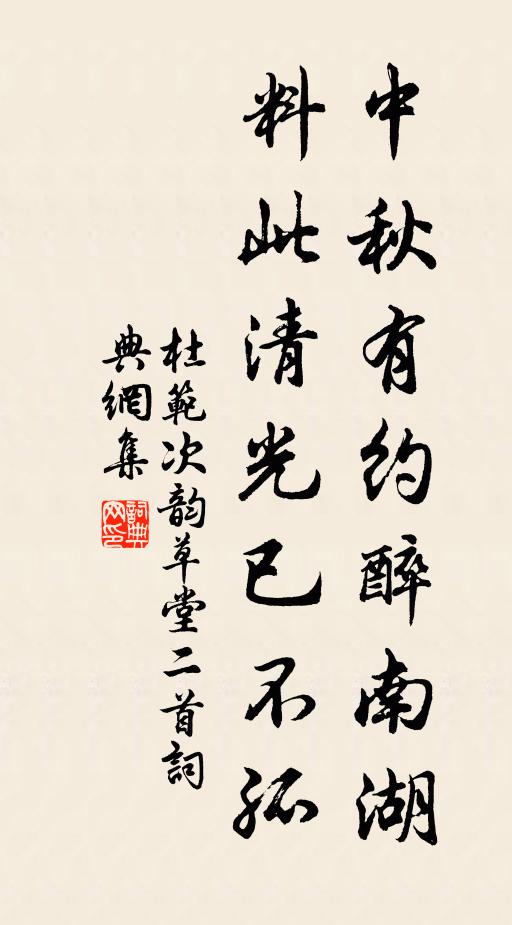 中秋有約醉南湖
料此清光已不孤
杜範次韵草堂二首詞
典網集
詞典
网印